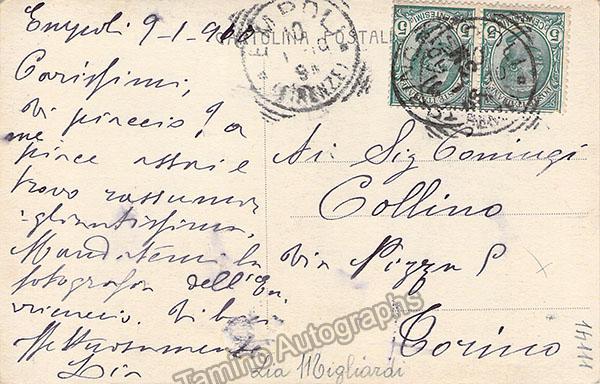 Empoli 9-1-908
CARTOLINA POSTALE
EMPOLI
(FIRENZE)
Carissimi,
Vi piaccio? a
me piace assai e
trovo rassomi
gliantissima.
Mandatemi la
fotografia dell'
Vi bacio
affettuosamente
Lia
Ai Sig Coniugi
Collino
Via Pizza
Torino
Lia Migliardi
Tamino Autographs